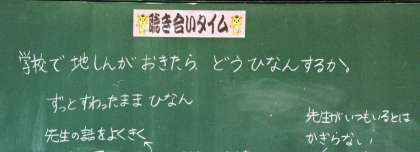 聴き合いタイム
学校で地しんがおきたら、どうひなんするか。
ずっとすわったままひなん
先生の話をよくきく
先生がいつもいるとは
かぎらない!